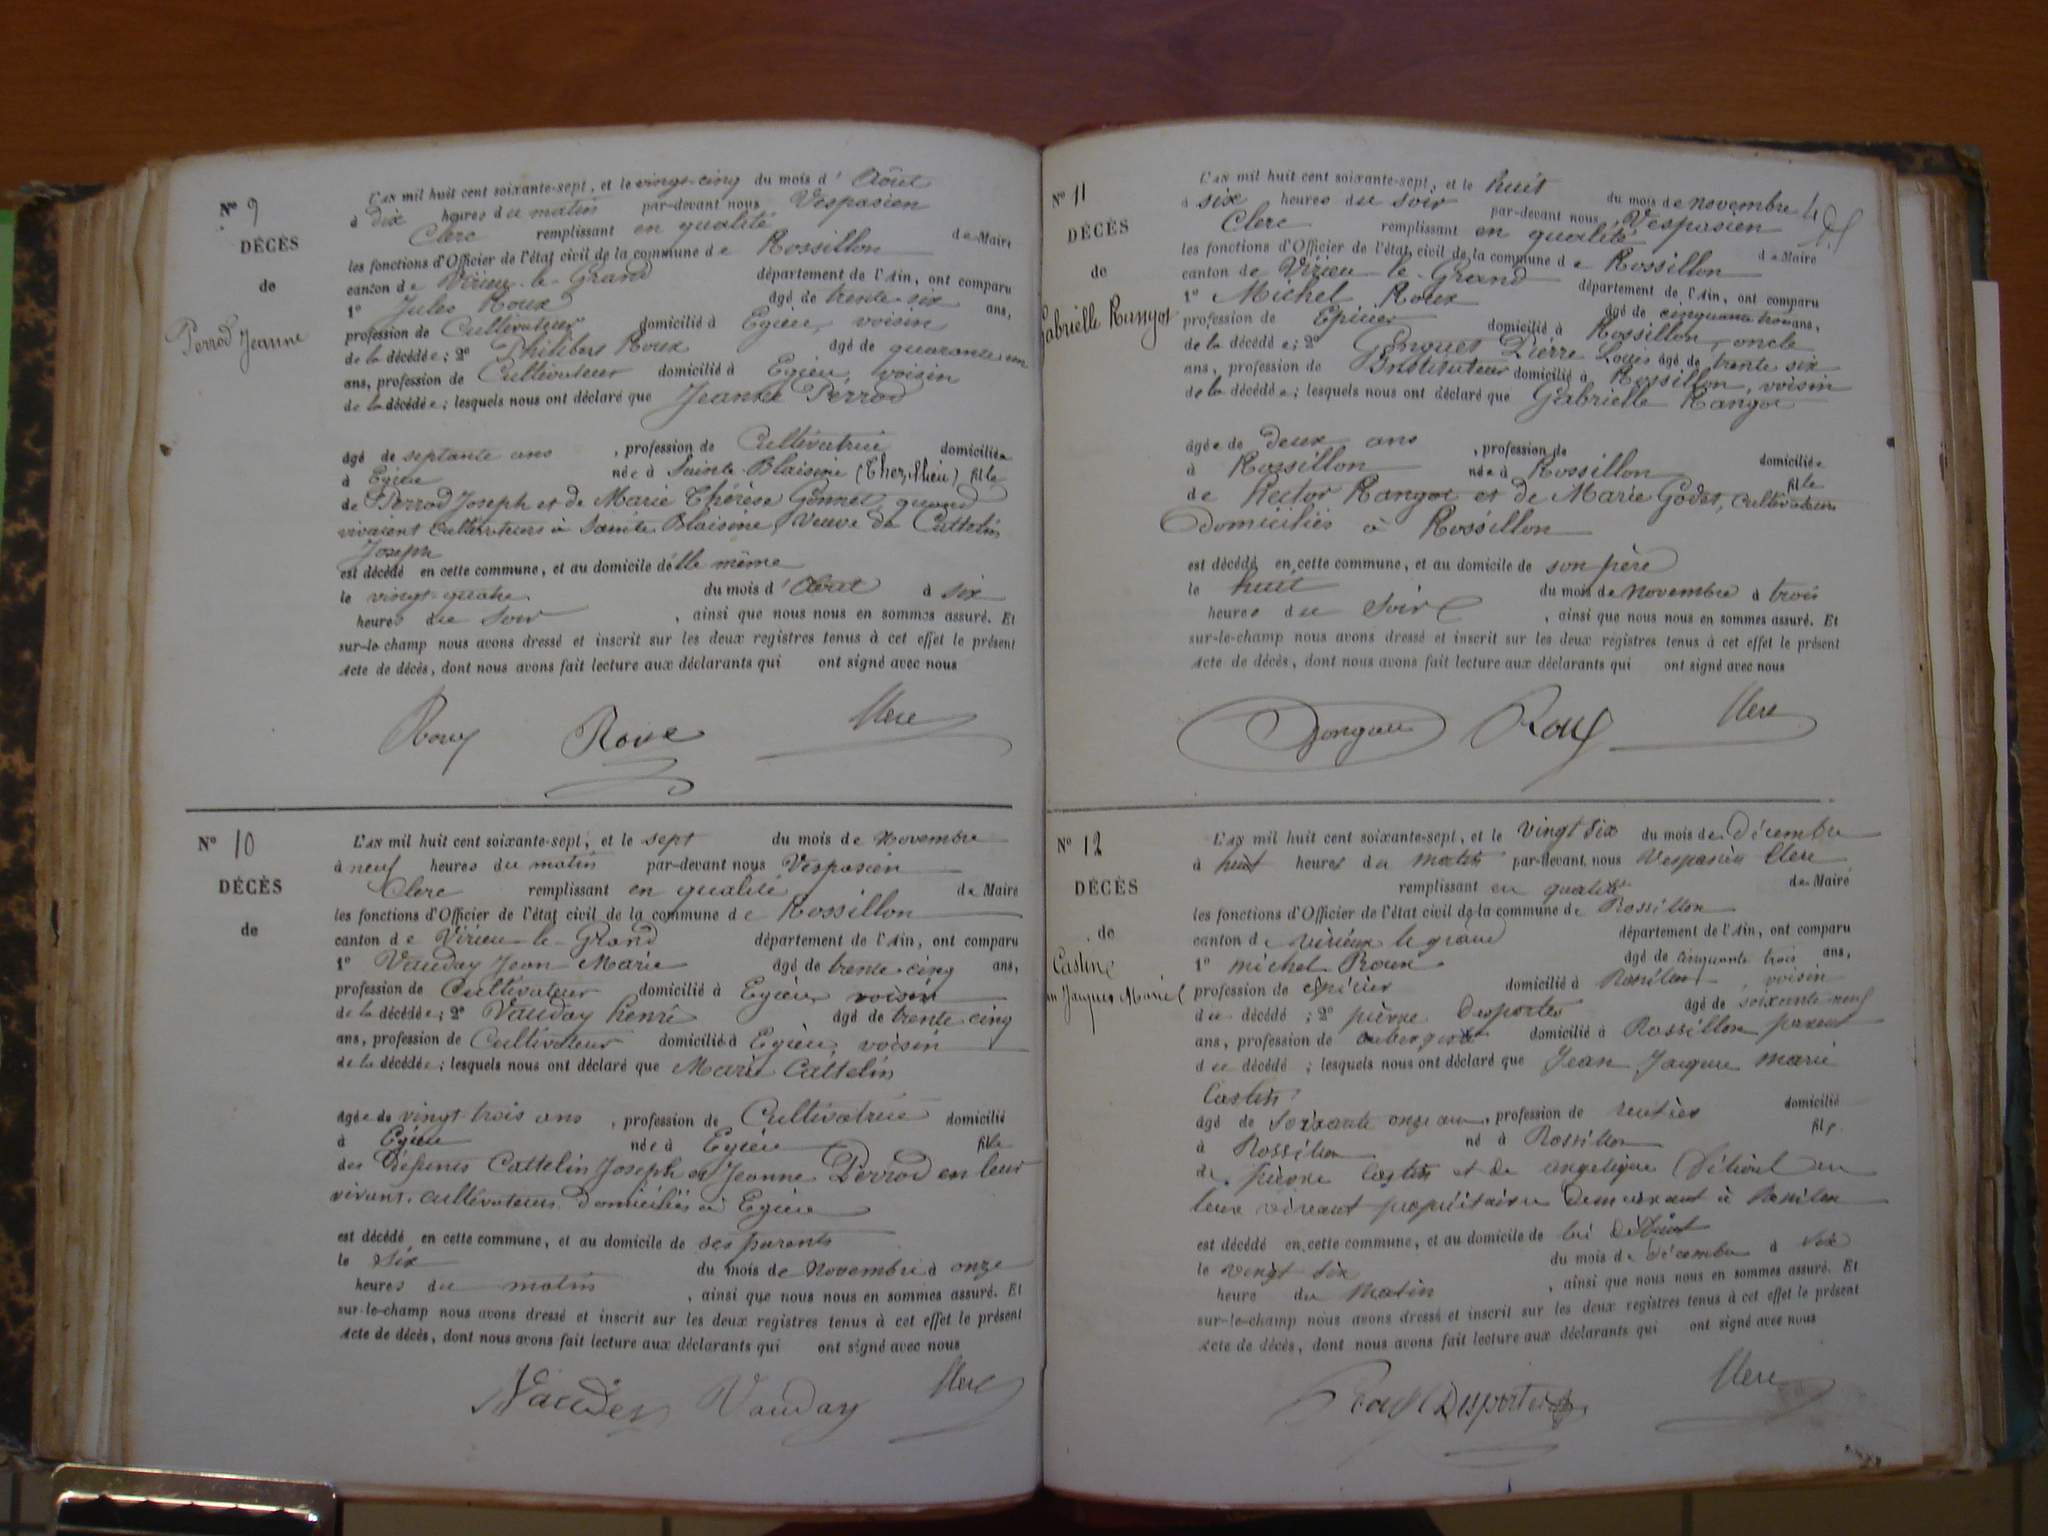 N° 9
DÉCÈS
de
Perrod Jeanne
L'AN mil huit cent soixante-sept, et le vingt-cinq du mois d'Août
à dix heures du matin par-devant nous Vespasien
Clerc remplissant en qualité de Maire
les fonctions d'Officier de l'état civil de la commune de Rossillon
canton de Virieu-le-Grand département de l'Ain, ont comparu
1° Jules Roux âgé de trente six ans,
profession de Cultivateur domicilié à Egieu, voisin
de la décédée; 2° Philibert Roux âgé de quarante un
ans, profession de Cultivateur domicilié à Egieu, voisin
de la décédée; lesquels nous ont déclaré que Jeanne Perrod
âgé de septante ans, profession de Cultivatrice domiciliée
à Egieu née à Sainte-Blaisine (Chez, Rieu) fille
de Perrod Joseph et de Marie Thérèse Gonnet, quand
vivaient Cultivateurs à Sainte Blaisine, veuve de Cattelin
Joseph
est décédé en cette commune, et au domicile d'elle même
le vingt-quatre du mois d'Août à six
heures du soir, ainsi que nous nous en sommes assuré. Et
sur-le-champ nous avons dressé et inscrit sur les deux registres tenus à cet effet le présent
Acte de décès, dont nous avons fait lecture aux déclarants qui ont signé avec nous
Roux Roux Clerc
N° 10
DÉCÈS
de
L'AN mil huit cent soixante-sept, et le sept du mois de Novembre
à neuf heures du matin par-devant nous Vespasien
Clerc remplissant en qualité de Maire
les fonctions d'Officier de l'état civil de la commune de Rossillon
canton de Virieu-le-Grand département de l'Ain, ont comparu
1° Vauday Jean Marie âgé de trente cinq ans,
profession de Cultivateur domicilié à Egieu, voisin
de la décédée; 2° Vauday henri âgé de trente cinq
ans, profession de Cultivateur domicilié à Egieu, voisin
de la décédée; lesquels nous ont déclaré que Marie Cattelin
âgée de vingt-trois ans, profession de Cultivatrice domicilié
à Egieu née à Egieu fille
des défunts Cattelin Joseph et Jeanne Perrod en leur
vivant cultivateurs domiciliés à Egieu
est décédé en cette commune, et au domicile de ses parents
le six du mois de Novembre à onze
heures du matin, ainsi que nous nous en sommes assuré. Et
sur-le-champ nous avons dressé et inscrit sur les deux registres tenus à cet effet le présent
Acte de décès, dont nous avons fait lecture aux déclarants qui ont signé avec nous
Vauday Vauday Clerc
N° 11
DÉCÈS
de
Gabrielle Rangot
L'AN mil huit cent soixante-sept, et le huit du mois de novembre
à six heures du soir par-devant nous Vespasien
Clerc remplissant en qualité de Maire
les fonctions d'Officier de l'état civil de la commune de Rossillon
canton de Virieu-le-Grand département de l'Ain, ont comparu
1° Michel Roux âgé de cinquante trois ans,
profession de Epicier domicilié à Rossillon, oncle
de la décédée; 2° Pierre Louis âgé de trente six
ans, profession de Instituteur domicilié à Rossillon, voisin
de la décédée; lesquels nous ont déclaré que Gabrielle Rangot
âgée de deux ans, profession de domiciliée
à Rossillon née à Rossillon fille
de Hector Rangot et de Marie Godet, cultivateurs
Domiciliés à Rossillon
est décédé en cette commune, et au domicile de son père
le huit du mois de novembre à trois
heures du soir, ainsi que nous nous en sommes assuré. Et
sur-le-champ nous avons dressé et inscrit sur les deux registres tenus à cet effet le présent
Acte de décès, dont nous avons fait lecture aux déclarants qui ont signé avec nous
Roux Clerc
N° 12
DÉCÈS
de
Castin
Jean Jacques Marie
L'AN mil huit cent soixante-sept, et le vingt six du mois de Décembre
à huit heures du matin par-devant nous Vespasien Clerc
remplissant en qualité de Maire
les fonctions d'Officier de l'état civil de la commune de Rossillon
canton de virieux le grand département de l'Ain, ont comparu
1° michel Roux âgé de cinquante trois ans,
profession de épicier domicilié à Rossillon, voisin
du décédé; 2° pierre Desportes âgé de soixante neuf
ans, profession de aubergiste domicilié à Rossillon parent
du décédé; lesquels nous ont déclaré que Jean Jacques marie
Castin
âgé de soixante onze ans, profession de rentier domicilié
à Rossillon né à Rossillon fils
de pierre Castin et de angelique en
leur vivant propriétaire demeurant à Rossillon
est décédé en cette commune, et au domicile de lui défunt
le vingt six du mois de décembre à six
heure du Matin, ainsi que nous nous en sommes assuré. Et
sur-le-champ nous avons dressé et inscrit sur les deux registres tenus à cet effet le présent
Acte de décès, dont nous avons fait lecture aux déclarants qui ont signé avec nous
Roux Desportes Clerc